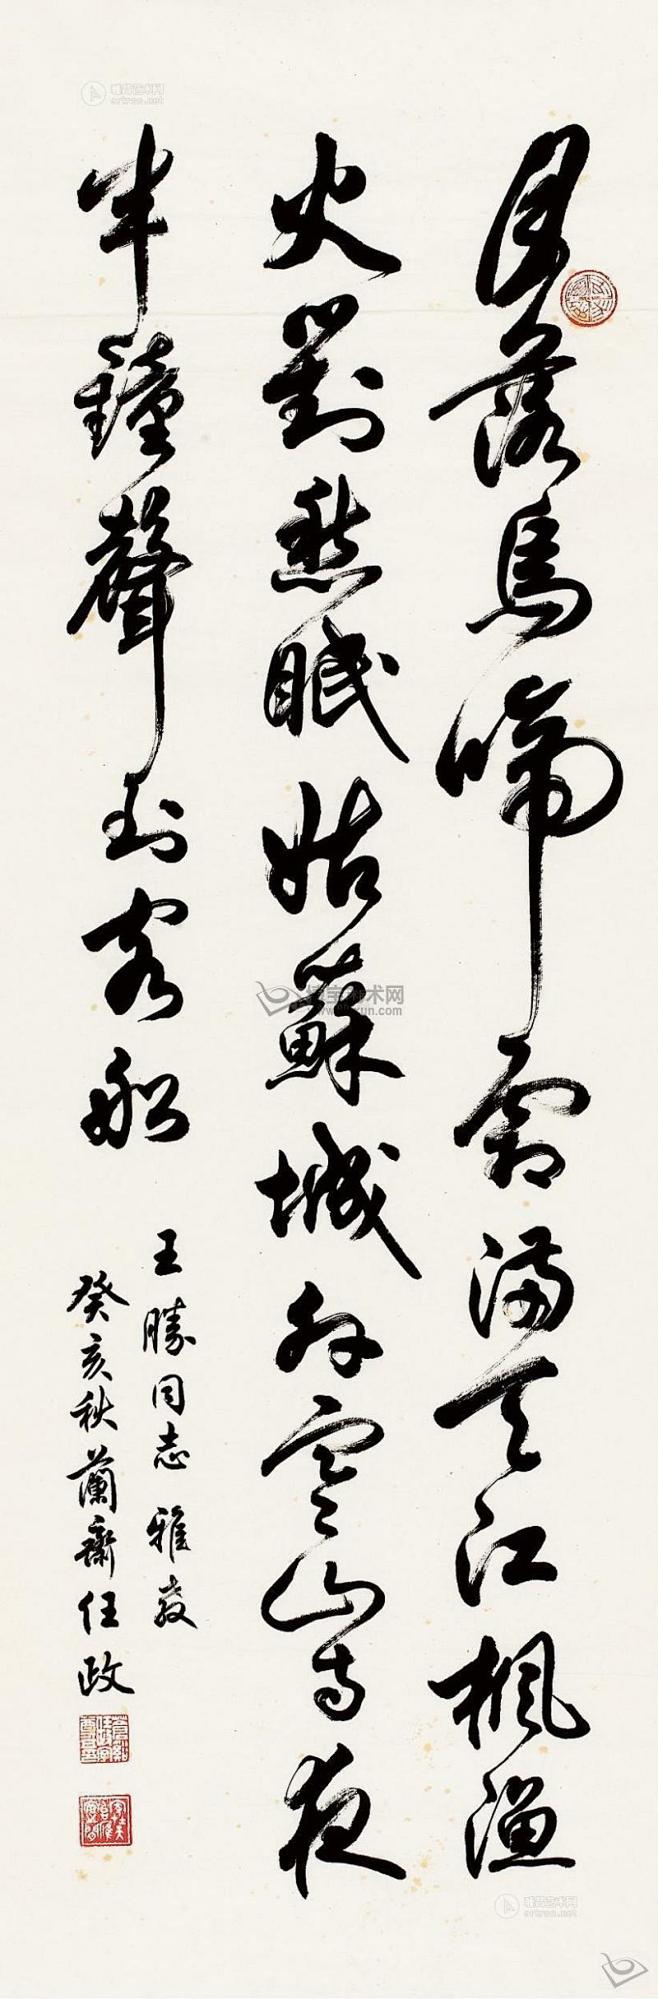 月落烏啼霜滿天江楓漁
火對愁眠姑蘇城外寒山寺夜
半鐘聲到客船
王勝同志雅教
癸亥秋蘭齋任政